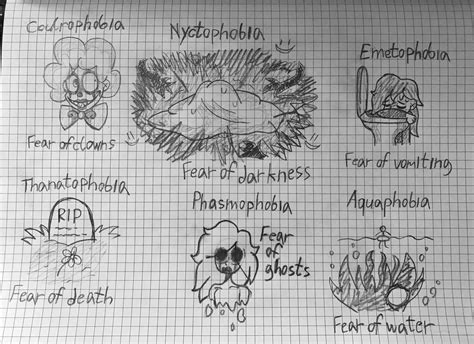 Coulrophobia
Fear of clowns
Nyctophobia
Fear of darkness
Emetophobia
Fear of vomiting
Thanatophobia
RIP
Fear of death
Phasmophobia
Fear
of
ghosts
Aquaphobia
Fear of water